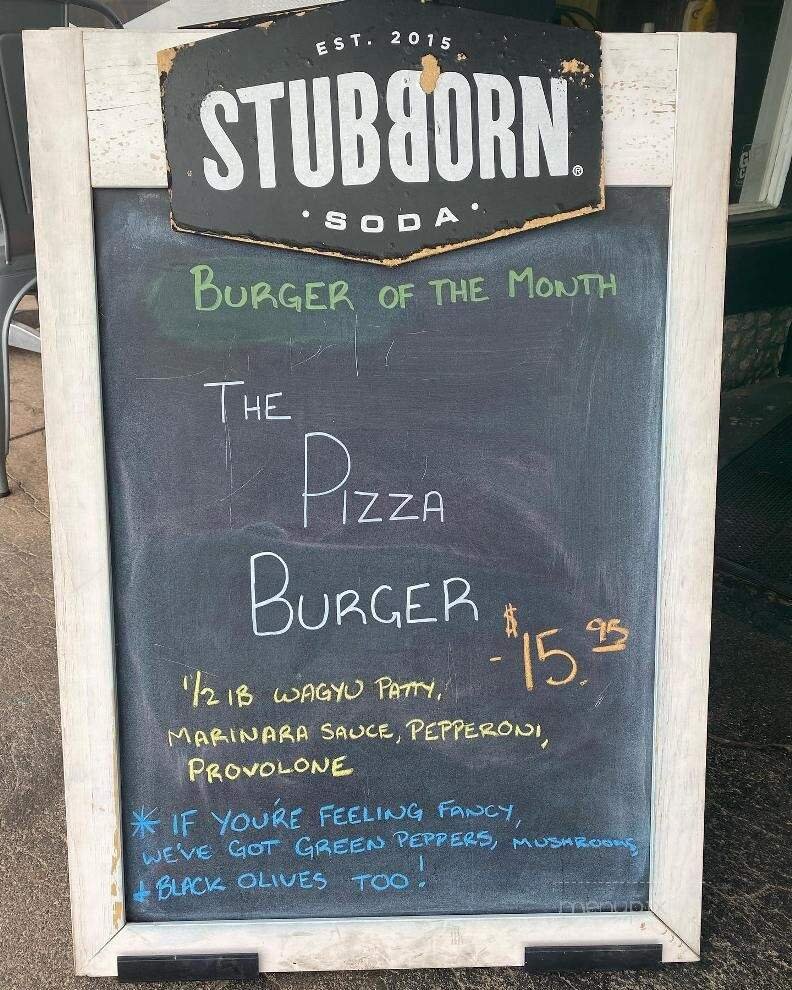 EST. 2015
STUBBORN®
• SODA •
BURGER OF THE MONTH
THE
PIZZA
BURGER
- $15.95
1/2 lB WAGYU PATTY,
MARINARA SAUCE, PEPPERONI,
PROVOLONE
* IF YOU'RE FEELING FANCY,
WE'VE GOT GREEN PEPPERS, MUSHROOMS
+ BLACK OLIVES TOO!